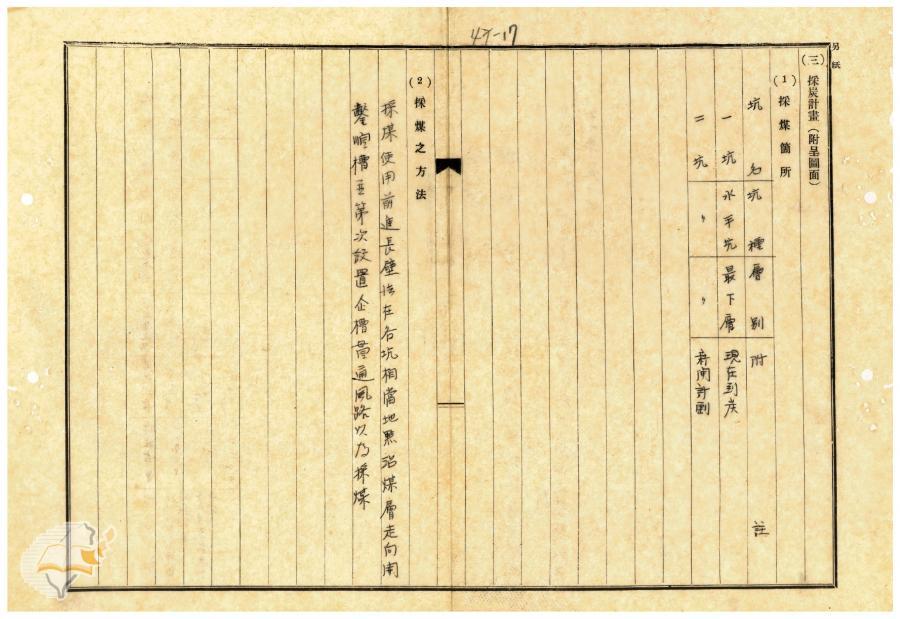 47-17
另紙
(三) 採炭計畫（附呈圖面）
(1) 採煤箇所
坑名 坑種 層別 附註
一坑 水平坑 最下層 現在到炭
二坑 〃 〃 新開計劃
(2) 採煤之方法
採煤使用前進長壁法在各坑相當地點沿煤層走向開
鑿 槽並第次設置企槽貫通風路以為採煤